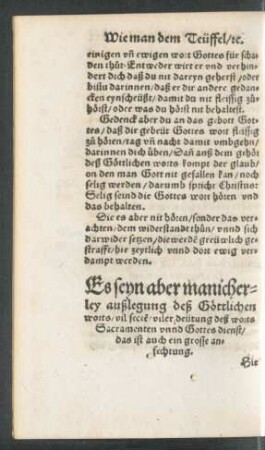 Wie man dem Teüffel/ꝛc.
einigen vñ ewigen wort Gottes für scha
den thůt. Entweder wirt er vnd verhin
dert dich daß du nit darvn geherst/oder
bistu darinnen/daß er dir andere gedan
cken eynscheüßt/damit du nit fleissig zů
hörst/oder was du hörst nit behaltest.
Gedenck aber du an das gebott Got
tes/daß dir gebeüt Gottes wort fleissig
zů hören/tag vñ nacht damit vmbgehn/
darinnen dich üben/Dañ auß dem gehör
deß Göttlichen worts kompt der glaub/
on den man Gott nit gefallen kan/noch
selig werden/darumb spricht Christus:
Selig seind die Gottes wort hören vnd
das behalten.
Die es aber nit hören/sonder das ver-
achten/dem widerstandt thůn/vnnd sich
darwider setzen/die werdē greüwlich ge-
strafft/hie zeytlich vnnd dort ewig ver-
dampt werden.
Es seyn aber manicher-
ley außlegung deß Göttlichen
worts/vil sectē/viler deütung deß worts
Sacramenten vnnd Gottes dienst/
das ist auch ein grosse an-
fechtung.
Hie